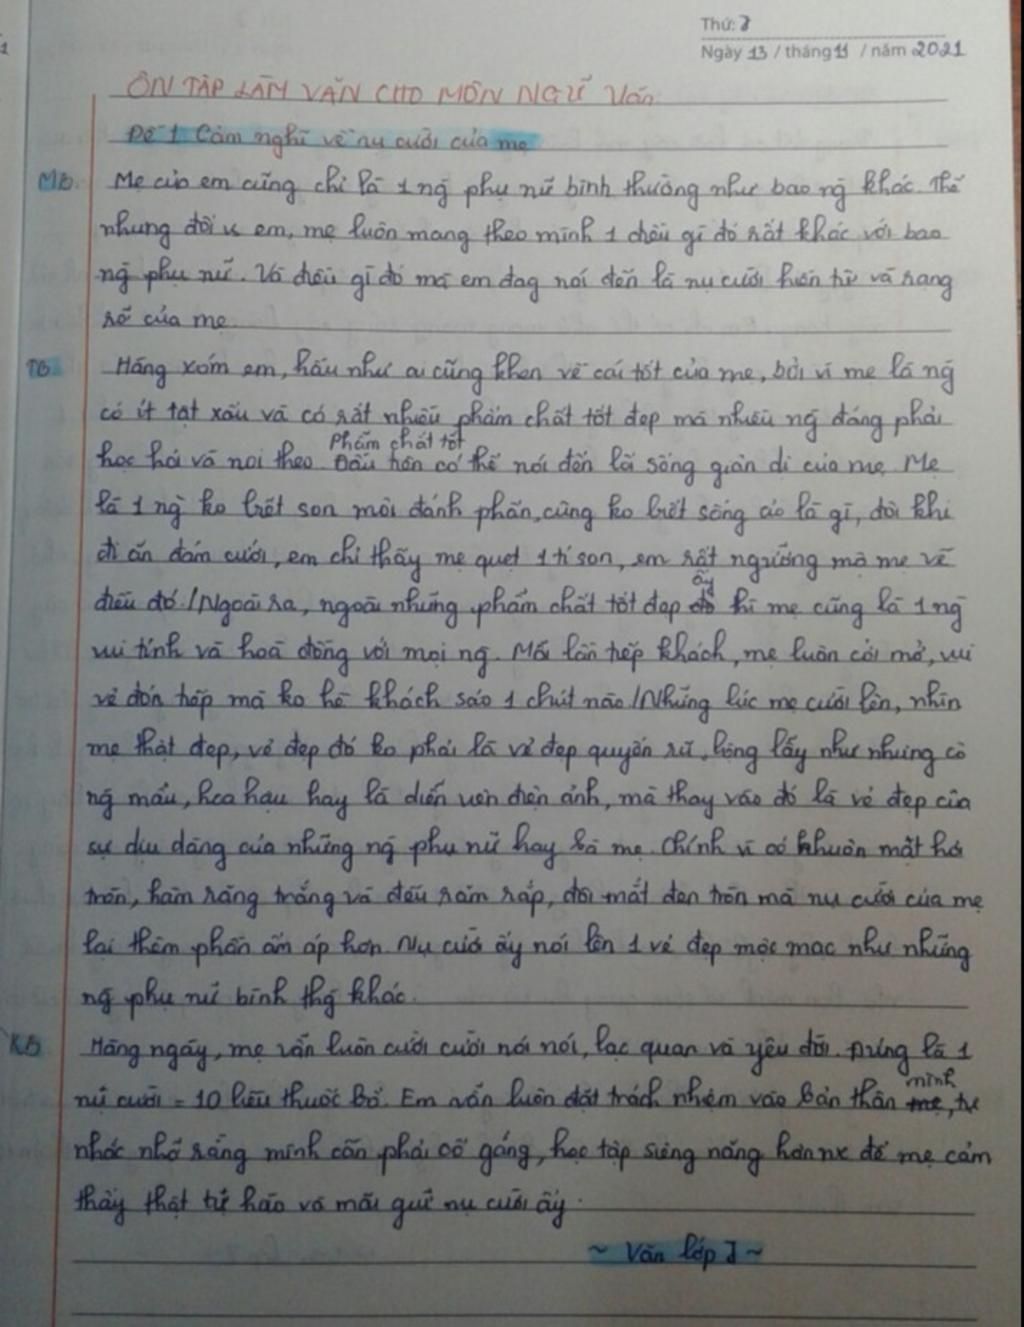 Thứ: 7
Ngày 13 / tháng 11 / năm 2021
ÔN TẬP LÀM VĂN CHO MÔN NGỮ Văn
Đề 1. Cảm nghĩ về nụ cười của mẹ
Mb. Mẹ của em cũng chỉ là 1 ng̀ phụ nữ bình thường như bao ng̀ khác. Thế
nhưng đối v em, mẹ luôn mang theo mình 1 điều gì đó rất khác với bao
ng̀ phụ nữ. Và điều gì đó mà em đag nói đến là nụ cười hiền từ và rạng
rỡ của mẹ.
TB. Hàng xóm em, hầu như ai cũng khen về cái tốt của mẹ, bởi vì mẹ là ng̀
có ít tật xấu và có rất nhiều phẩm chất tốt đẹp mà nhiều ng̀ đáng phải
Phẩm chất tốt
học hỏi và noi theo Đầu tiên có thể nói đến lối sống giản dị của mẹ. Mẹ
là 1 ng̀ ko biết son môi đánh phấn, cũng ko biết sống ảo là gì, đôi khi
đi ăn đám cưới, em chỉ thấy mẹ quẹt 1 tí son, em rất ngưỡng mộ mẹ về
ấy
điều đó./Ngoài ra, ngoài những phẩm chất tốt đẹp đó thì mẹ cũng là 1 ng̀
vui tính và hoà đồng với mọi ng̀. Mỗi lần tiếp khách, mẹ luôn cởi mở, vui
vẻ đón tiếp mà ko hề khách sáo 1 chút nào./Những lúc mẹ cười lên, nhìn
mẹ thật đẹp, vẻ đẹp đó ko phải là vẻ đẹp quyến rũ, lộng lẫy như những cô
ng̀ mẫu, hoa hậu hay là diễn viên điện ảnh, mà thay vào đó là vẻ đẹp của
sự dịu dàng của những ng̀ phụ nữ hay bà mẹ. Chính vì có khuôn mặt hơi
tròn, hàm răng trắng và đều răm rắp, đôi mắt đen tròn mà nụ cười của mẹ
lại thêm phần ấm áp hơn. Nụ cười ấy nói lên 1 vẻ đẹp mộc mạc như những
ng̀ phụ nữ bình thg̀ khác.
KB Hằng ngày, mẹ vẫn luôn cười cười nói nói, lạc quan và yêu đời. Đúng là 1
mình
nụ cười = 10 liều thuốc bổ. Em vẫn luôn đặt trách nhiệm vào bản thân mẹ, tự
nhắc nhở rằng mình cần phải cố gắng, học tập siêng năng hơn nx để mẹ cảm
thấy thật tự hào và mãi giữ nụ cười ấy.
~ Văn lớp 7 ~